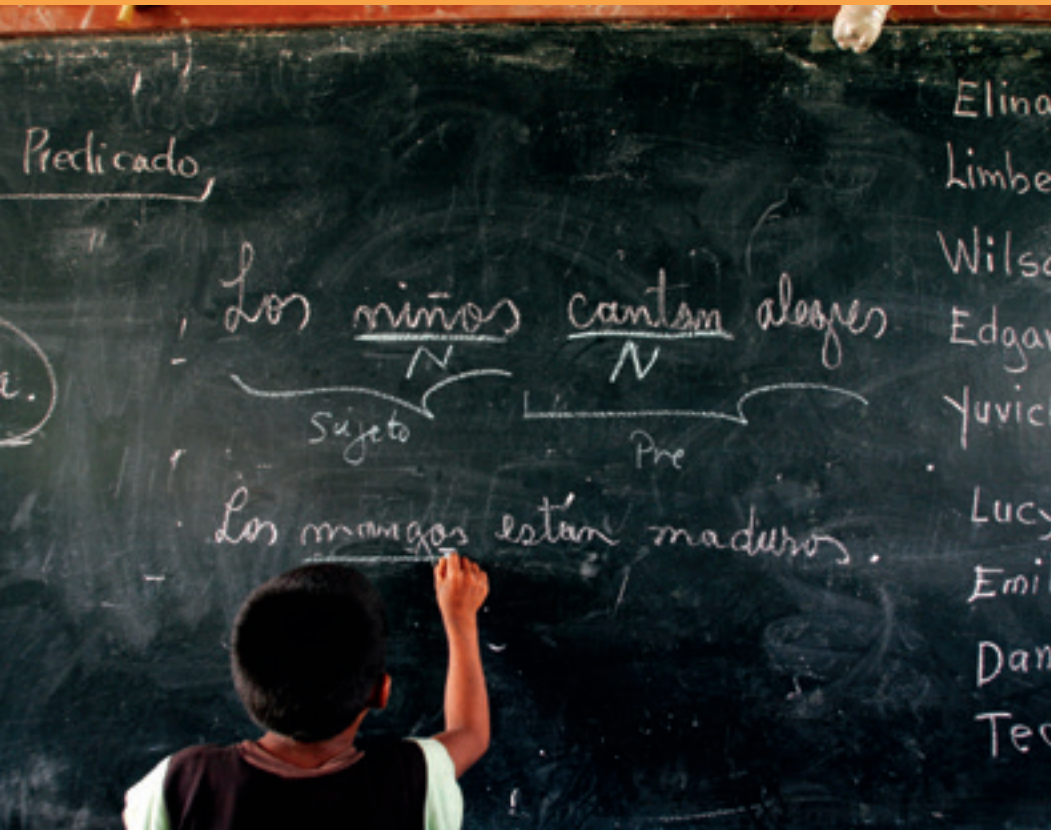 Predicado,
a.
Los niños cantan alegres
N N
Sujeto Pre
Los mangos están maduros.
Elina
Limbe
Wilso
Edgar
Yuvic
Lucy
Emi
Dan
Teo